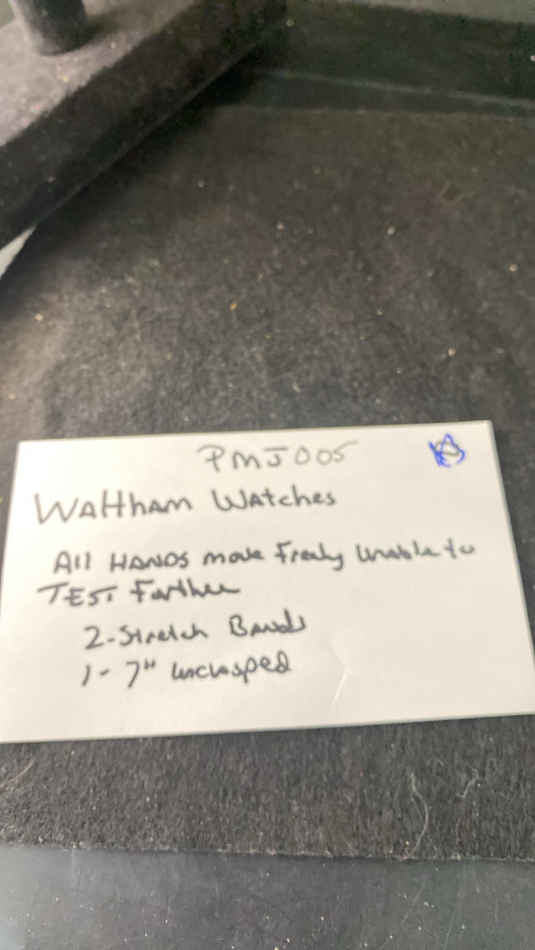 PMJ005
Waltham Watches
All HANDS move Freely Unable to
TEST Further
2-Stretch Bands
1-7" unclasped